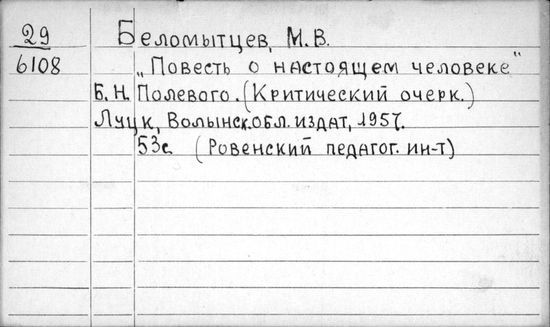 29 Беломытцев, М.В.
6108 „Повесть о настоящем человеке"
Б.Н. Полевого. (Критический очерк.)
Луцк, Волынск.обл.издат, 1957.
53с. (Ровенский педагог. ин-т)